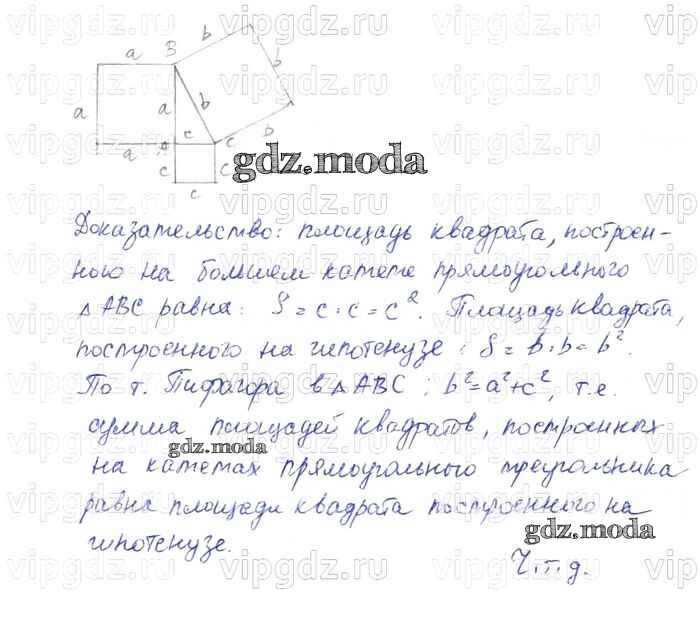 a B b
a a b b
a c c b
c c
c
Доказательство: площадь квадрата, построен-
ного на большем катете прямоугольного
△ABC равна: S = c · c = c². Площадь квадрата,
построенного на гипотенузе: S = b · b = b².
По т. Пифагора в △ABC: b² = a² + c², т.е.
сумма площадей квадратов, построенных
на катетах прямоугольного треугольника
равна площади квадрата построенного на
гипотенузе.
Ч.т.д.
gdz.moda
gdz.moda
gdz.moda
vipgdz.ru